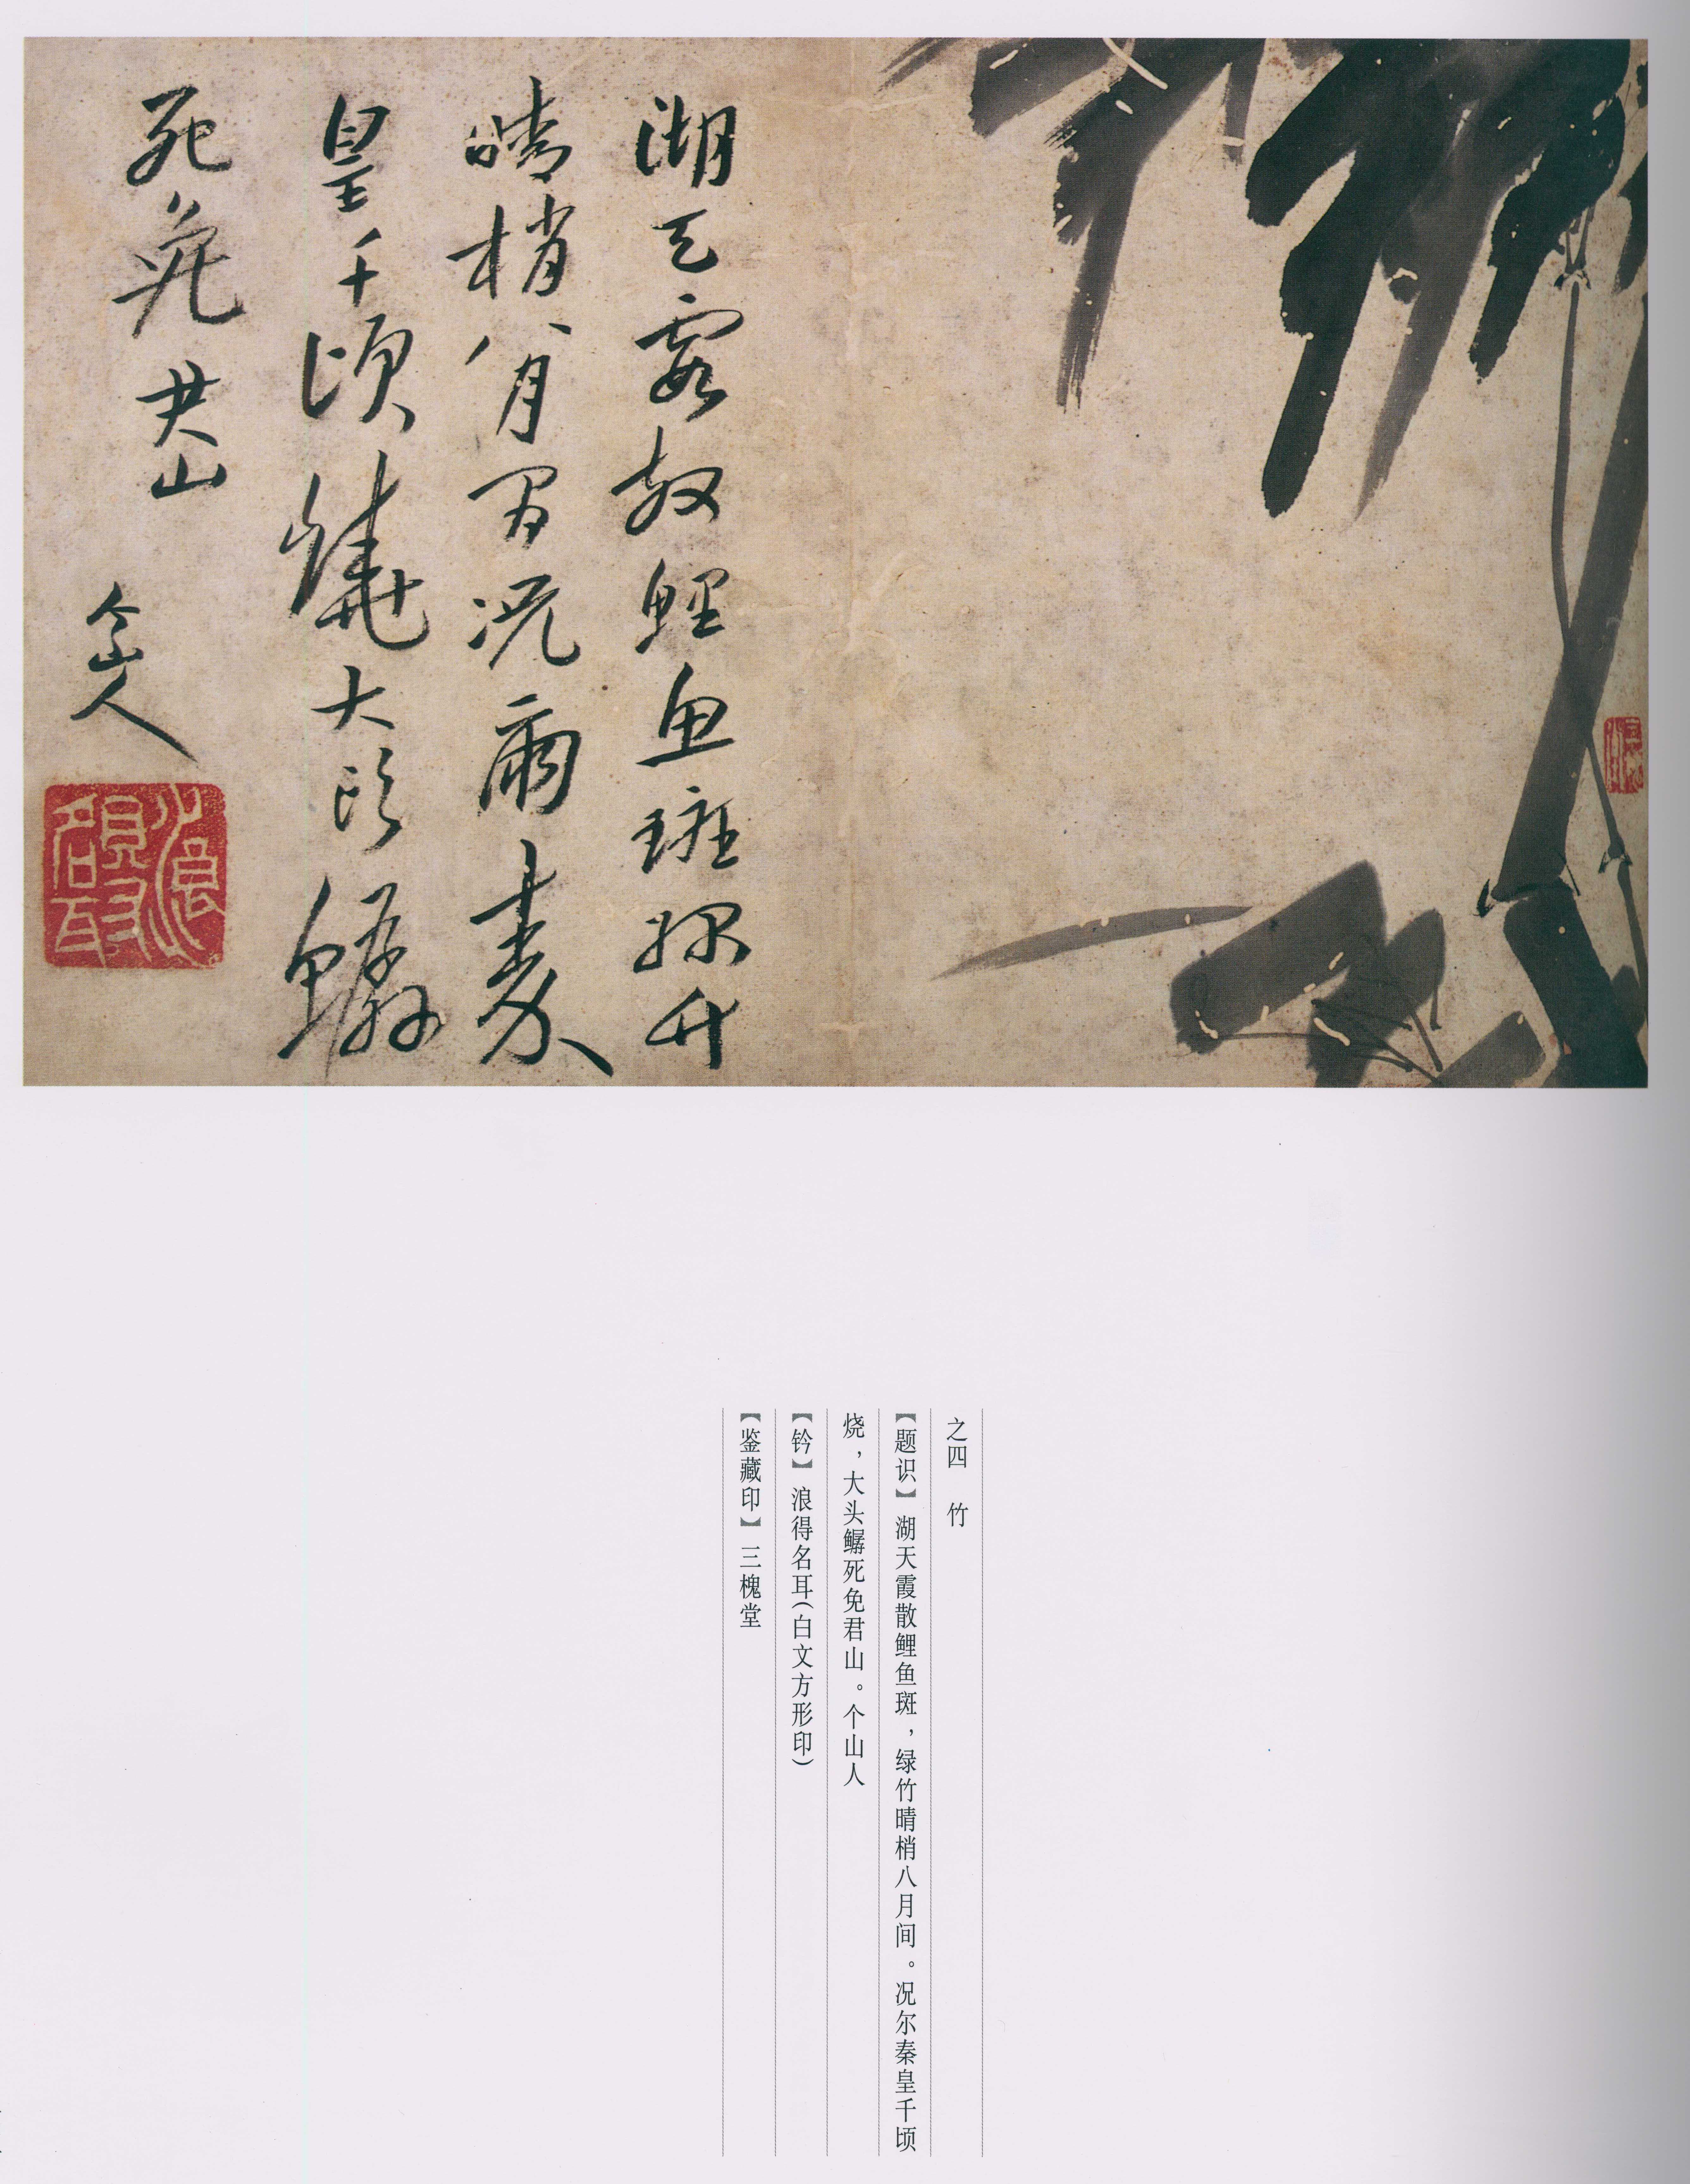 湖天霞散鲤魚斑綠竹
晴梢八月間况爾秦
皇千頃燒大頭鱘
死免君山
个山人
浪得名耳
之四 竹
【题识】湖天霞散鲤鱼斑，绿竹晴梢八月间。况尔秦皇千顷
烧，大头鱘死免君山。个山人
【钤】浪得名耳（白文方形印）
【鉴藏印】三槐堂